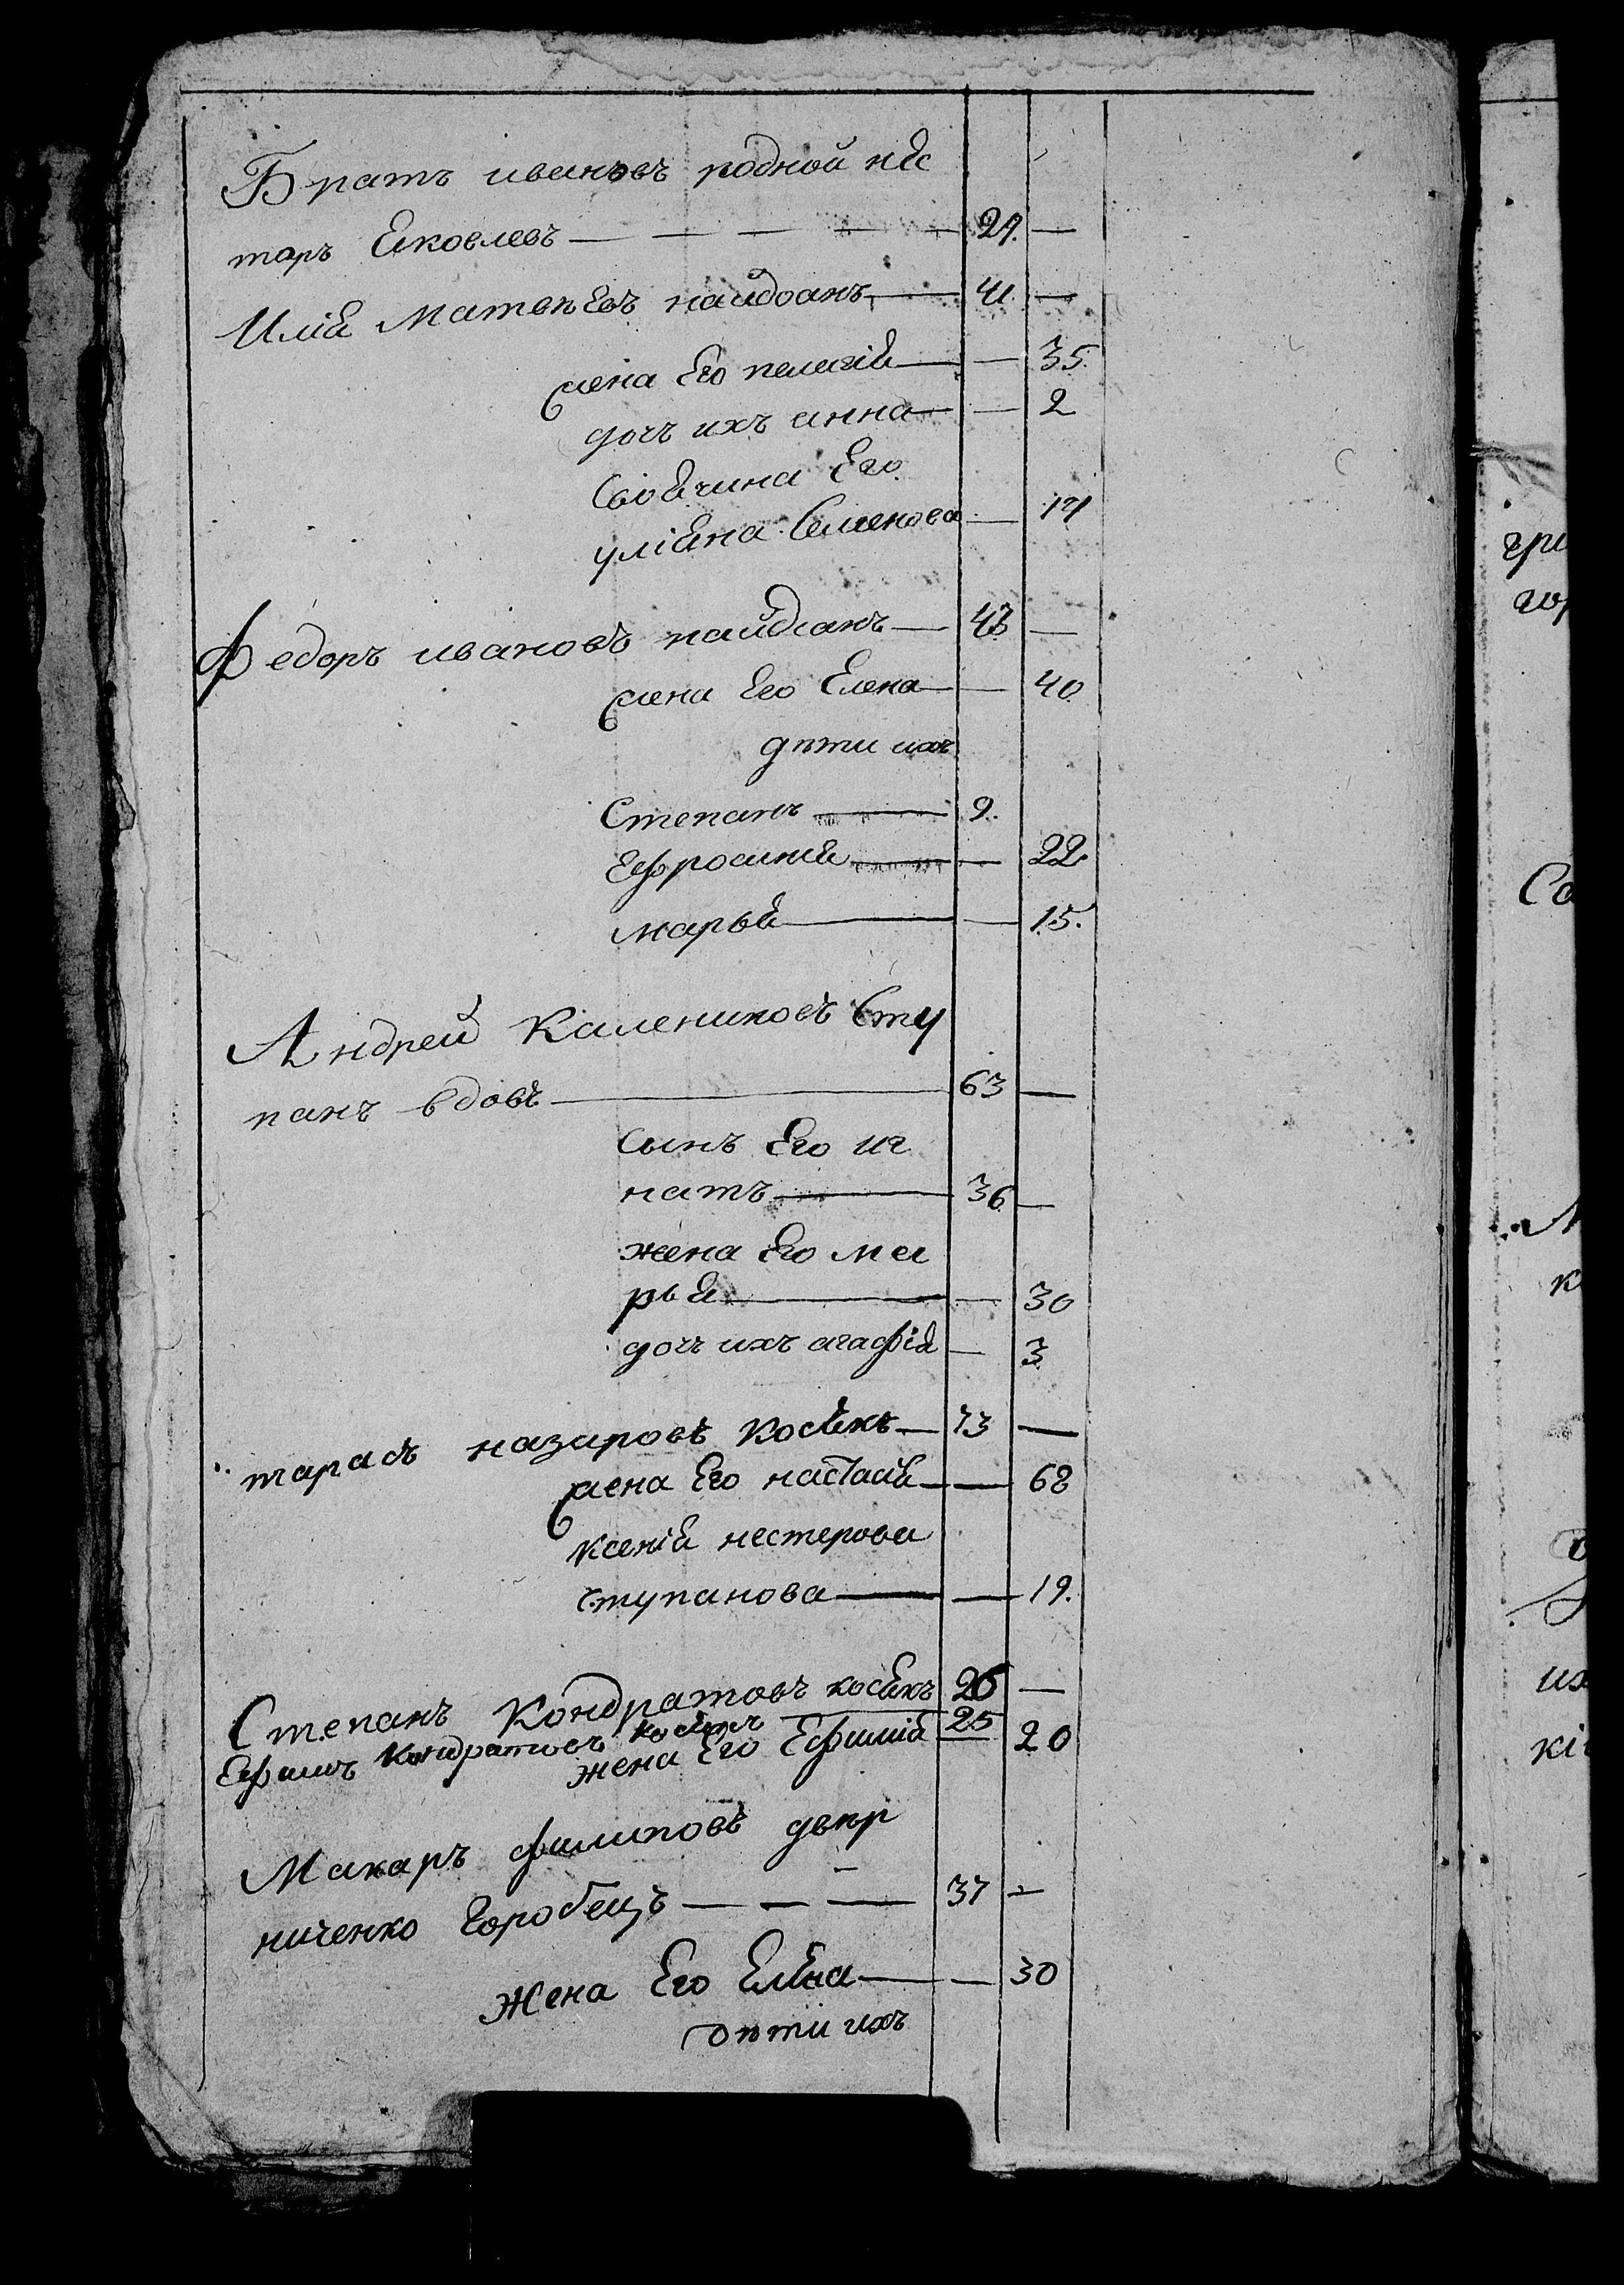 Братъ ивановъ родной нес
торъ Яковлевъ — — — — 29. —
Илія Матвѣевъ найдіанъ — 41. —
жена Его пелагія — — 35.
дочъ ихъ анна — — 2
Своячина Его
уліяна Семенова — 14
Федоръ ивановъ найдіанъ — 43 —
жена Его Елена — — 40
дѣти ихъ
Степанъ — 9.
Ефросинія — — 22
марья — — 15.
Андрей Калениковъ Сту
панъ вдовъ — 63 —
сынъ Его иг
натъ — 36 —
жена Его ма
рья — — 30
дочъ ихъ агафія — 3
тарасъ назаровъ Косякъ — 73 —
жена Его настасія — — 68
Ксенія нестерова
ступанова — — 19.
Степанъ Кондратовъ косякъ 26 —
Ефимъ Кондратовъ Косякъ — 25
жена Его Ефимія — 20
Макаръ филиповъ двер
ниченко Горобецъ — — — 37 —
Жена Его Елена — — 30
дѣти ихъ
гри
гор
Со
М
к
их
кі